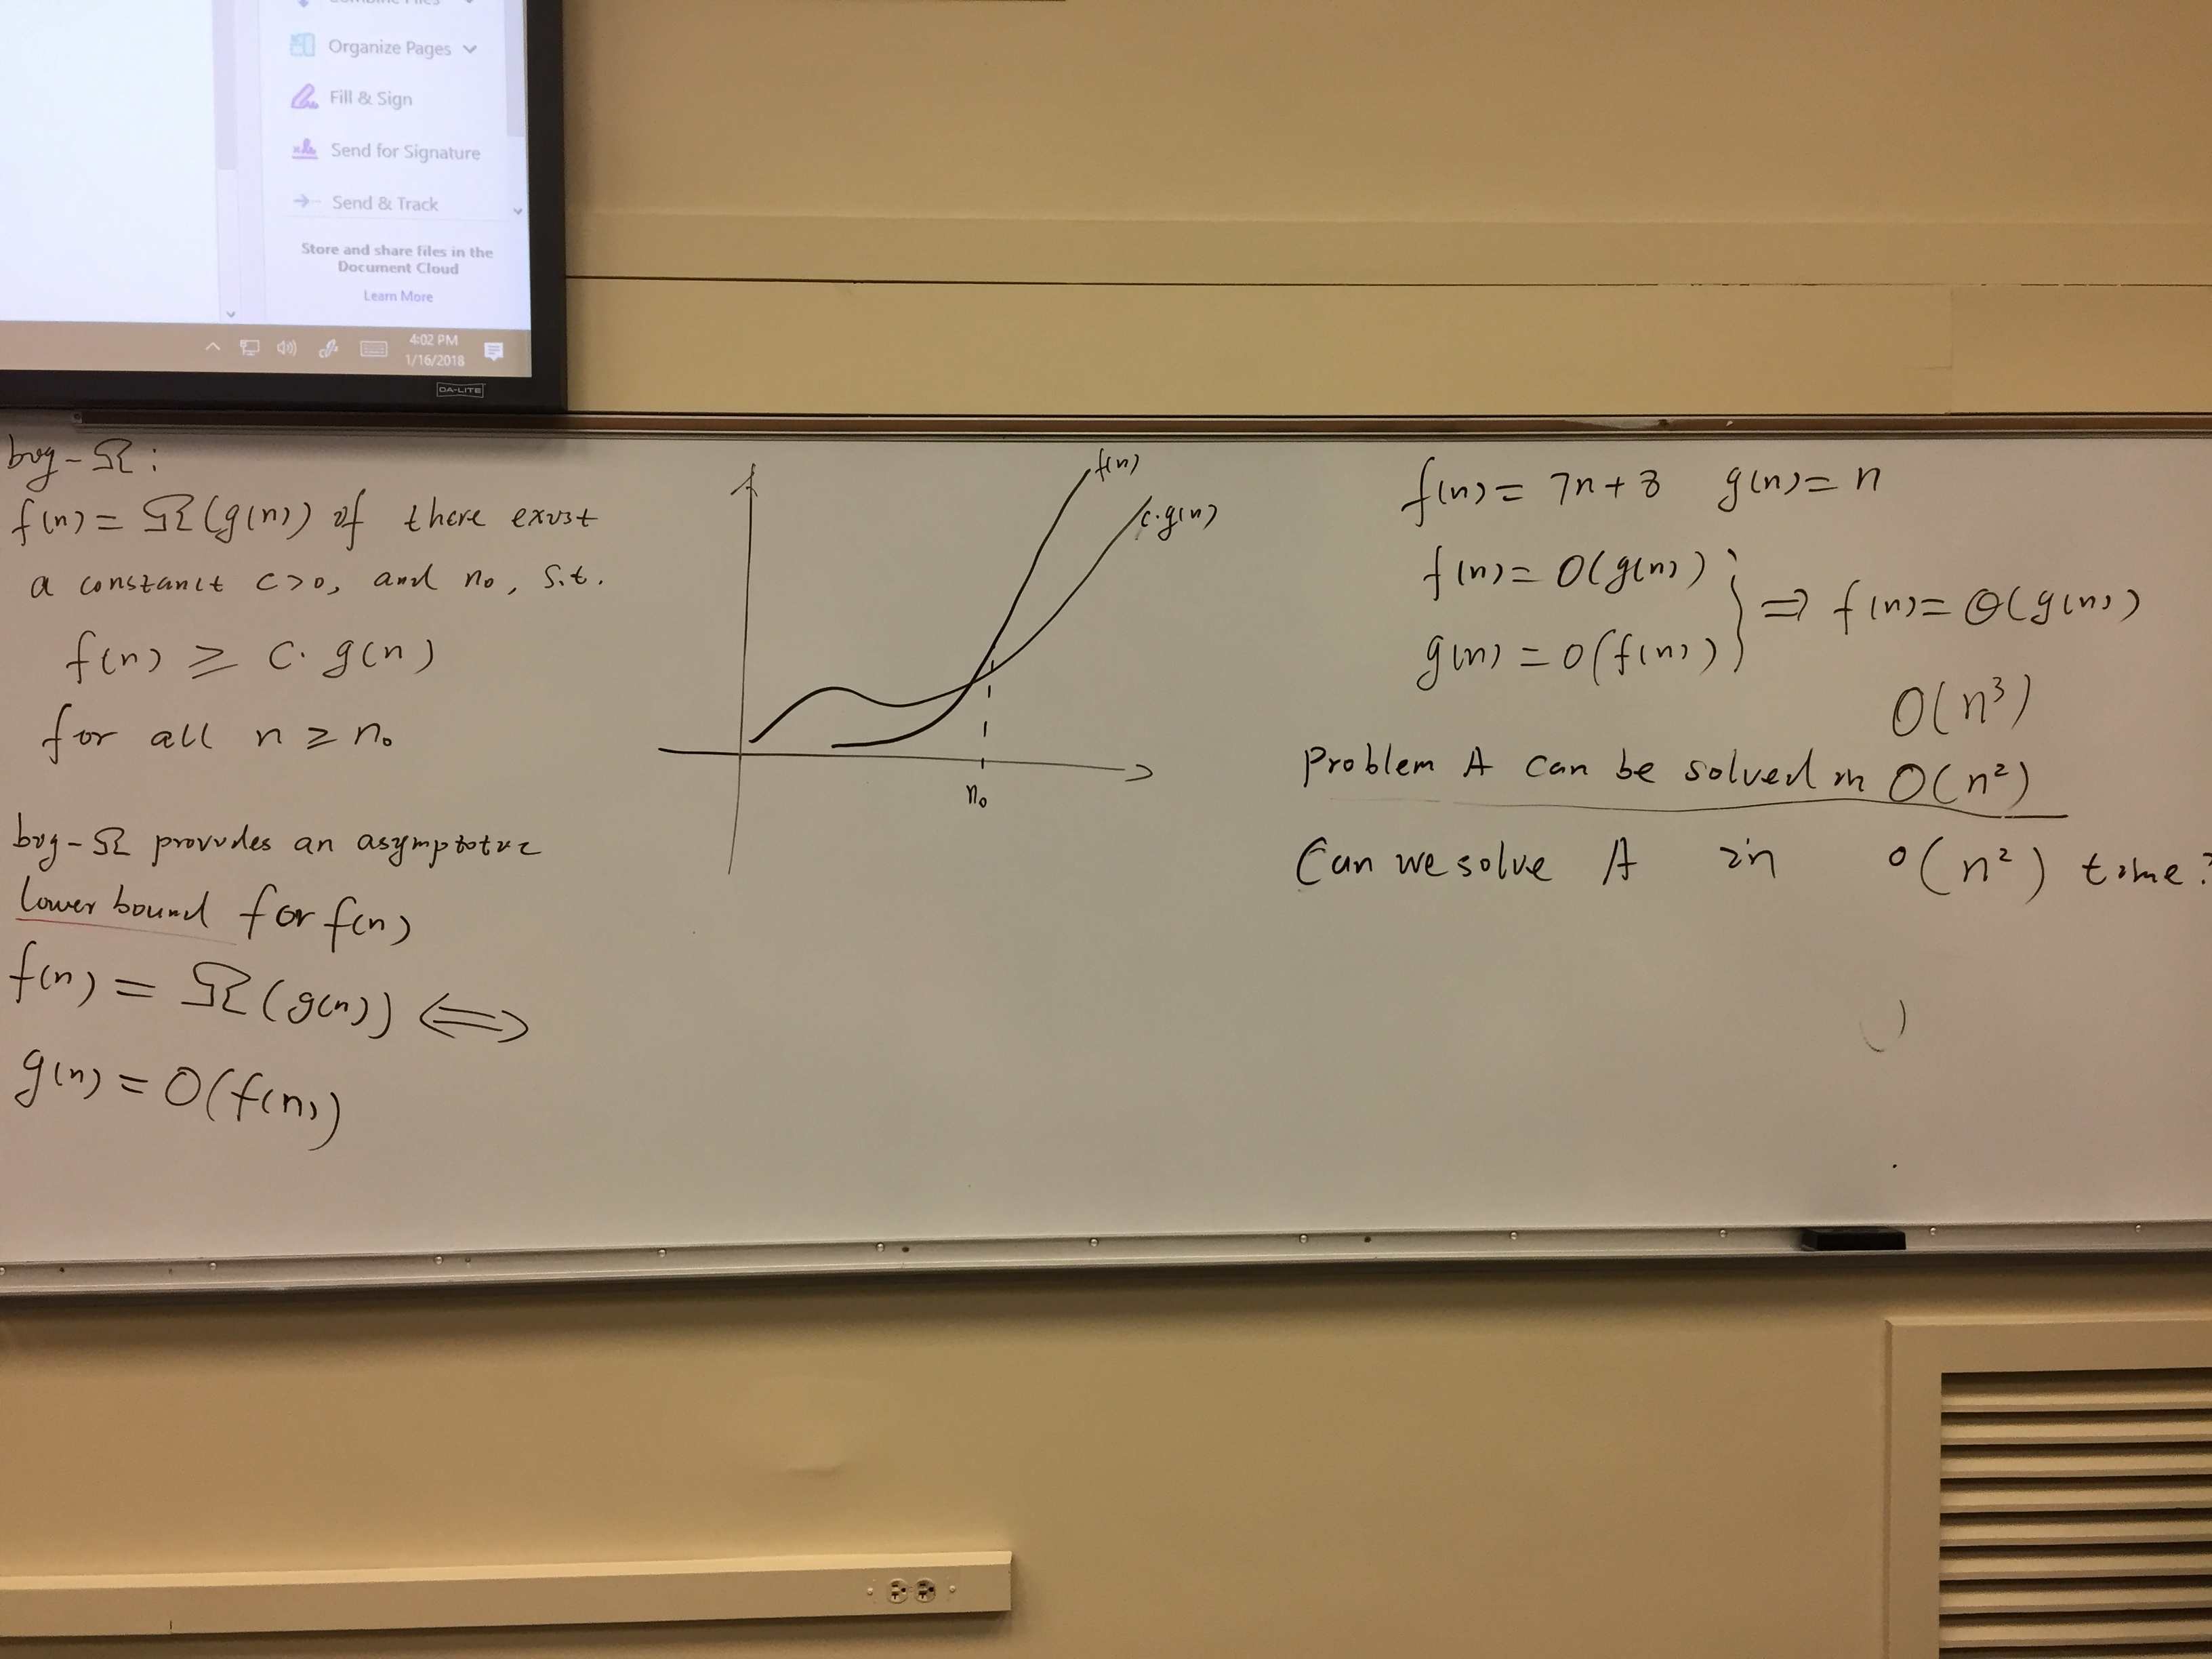 Organize Pages
Fill & Sign
Send for Signature
Send & Track
Store and share files in the
Document Cloud
Learn More
4:02 PM
1/16/2018
DA-LITE
big-Ω:
f(n) = Ω(g(n)) if there exist
a constant c>0, and n₀, s.t.
f(n) ≥ c·g(n)
for all n ≥ n₀
big-Ω provides an asymptotic
lower bound for f(n)
f(n) = Ω(g(n)) ⟺
g(n) = O(f(n))
f(n)
c·g(n)
n₀
f(n) = 7n+8 g(n) = n
f(n) = O(g(n))
g(n) = O(f(n)) } ⇒ f(n) = Θ(g(n))
O(n³)
Problem A can be solved in O(n²)
Can we solve A in o(n²) time?